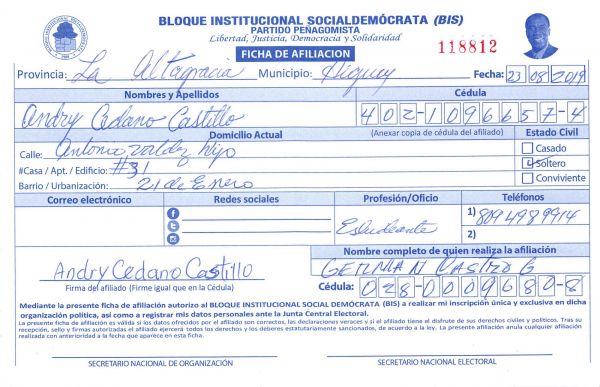 BLOQUE INSTITUCIONAL SOCIALDEMÓCRATA (BIS)
PARTIDO PEÑAGOMISTA
Libertad, Justicia, Democracia y Solidaridad
FICHA DE AFILIACION
118812
Provincia: La Altagracia Municipio: Higuey Fecha: 23 08 2019
Nombres y Apellidos Cédula
Andry Cedano Castillo 402-1096657-4
Domicilio Actual (Anexar copia de cédula del afiliado) Estado Civil
Calle: Antonio Valdez hijo Casado
#Casa / Apt. / Edificio: #31 Soltero
Barrio / Urbanización: 21 de Enero Conviviente
Correo electrónico Redes sociales Profesión/Oficio Teléfonos
Estudeante 1) 8094989914
2)
Nombre completo de quien realiza la afiliación
Andry Cedano Castillo GERMAN Castro G
Firma del afiliado (Firme igual que en la Cédula) Cédula: 028-0009680-8
Mediante la presente ficha de afiliación autorizo al BLOQUE INSTITUCIONAL SOCIAL DEMÓCRATA (BIS) a realizar mi inscripción única y exclusiva en dicha
organización política, así como a registrar mis datos personales ante la Junta Central Electoral.
La presente ficha de afiliación es válida si los datos ofrecidos por el afiliado son correctos, las declaraciones veraces y si el afiliado tiene el disfrute de sus derechos civiles y políticos. Tras su
recepción, sello y firmas autorizadas el afiliado ejercerá todos los derechos y los deberes estatutariamente sancionados, de acuerdo a la ley. La presente afiliación anula cualquier afiliación
realizada con anterioridad a la fecha que aparece en esta ficha.
SECRETARIO NACIONAL DE ORGANIZACIÓN SECRETARIO NACIONAL ELECTORAL